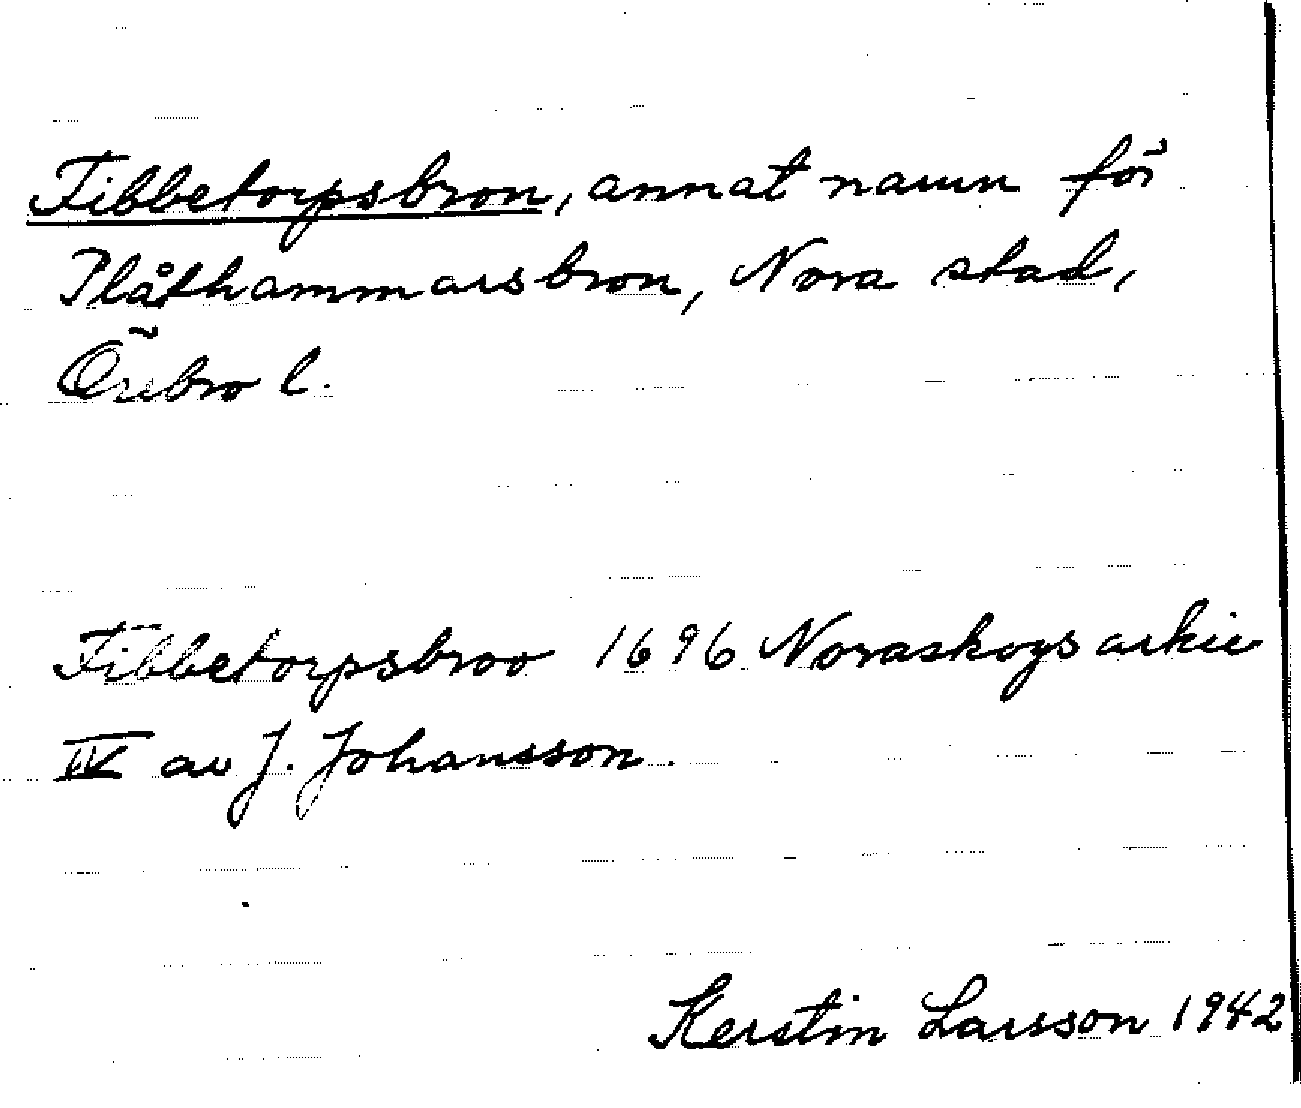 Fibbetorpsbron, annat namn för
Plåthammarsbron, Nora stad,
Örebro l.
Fibbetorpsbroo 1696 Noraskogs arkiv
IV av J. Johansson.
Kerstin Larsson 1942